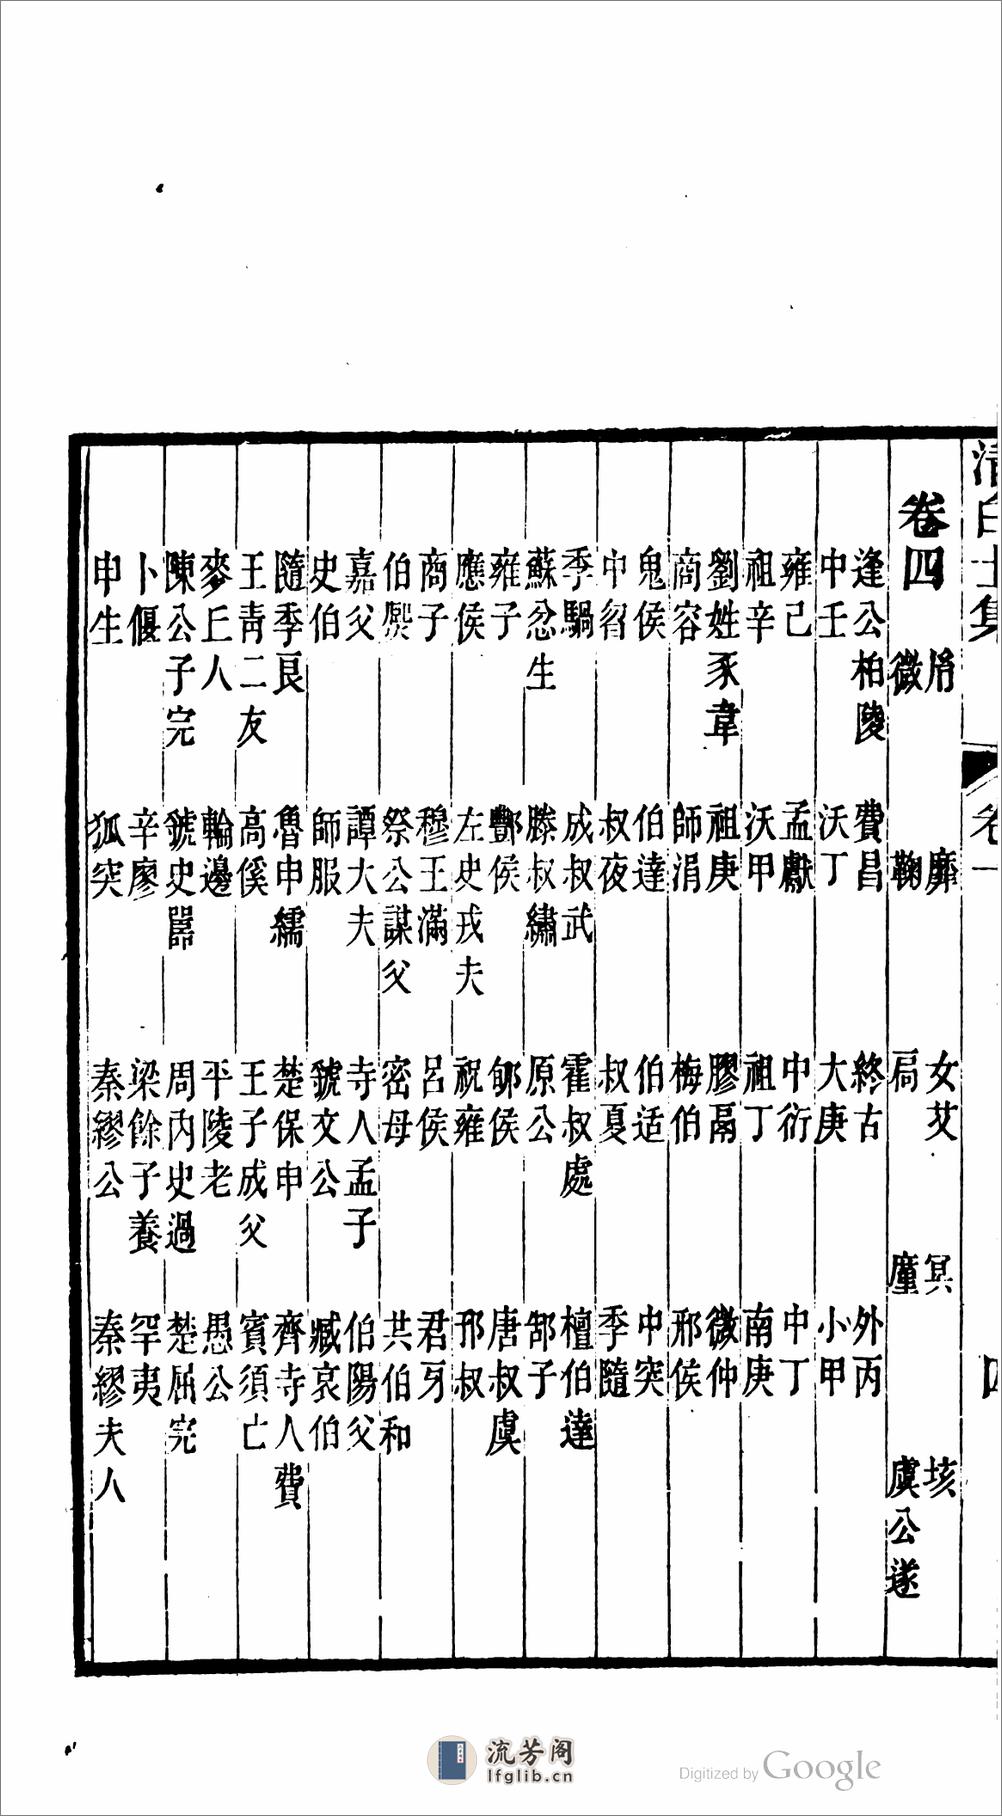 清白士集 卷一 四
卷四
靡 女艾 冥 垓
微 鞠 扃 廑 虞公遂
逢公柏陵 費昌 終古 外丙
中壬 沃丁 大庚 小甲
雍己 孟獻 中衍 中丁
祖辛 沃甲 祖丁 南庚
劉姓豕韋 祖庚 膠鬲 微仲
商容 師涓 梅伯 邢侯
鬼侯 伯達 伯适 中突
中曶 叔夜 叔夏 季隨
季騧 成叔武 霍叔處 檀伯達
蘇忿生 滕叔繡 原公 郜子
雍子 酆侯 郇侯 唐叔虞
應侯 左史戎夫 祝雍 邢叔
商子 穆王滿 呂侯 君牙
伯煛 祭公謀父 密母 共伯和
嘉父 譚大夫 寺人孟子 伯陽父
史伯 師服 虢文公 臧哀伯
隨季良 魯申繻 楚保申 齊寺人費
王靑二友 高傒 王子成父 賓須亡
麥丘人 輪邊 平陵老 愚公
陳公子完 虢史嚚 周內史過 楚屈完
卜偃 辛廖 梁餘子養 罕夷
申生 狐突 秦繆公 秦繆夫人
流芳阁
lfglib.cn
Digitized by Google